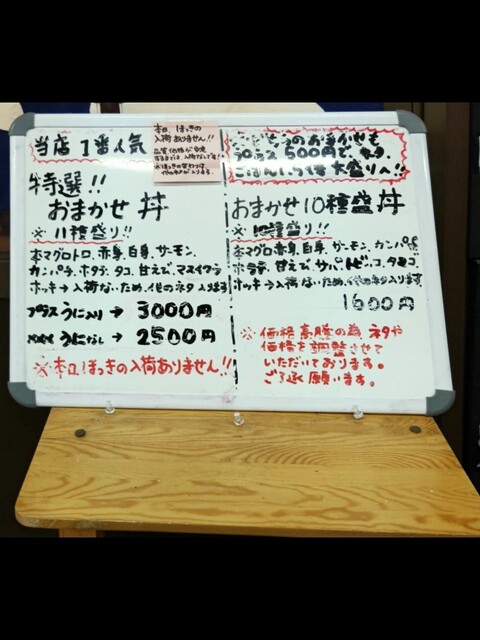 当店 1番人気
本日、ほっきの
入荷ありません!!
品質、価格が安定
するまでは、入荷なしです!
特選!!
おまかせ 丼
※ 11種盛り!!
本マグロトロ、赤身、白身、サーモン、
カンパチ、ホタテ、タコ、甘えび、マスイクラ
ホッキ→入荷ないため、他のネタ入ります!
プラスうに入り → 3000円
うになし → 2500円
※本日ほっきの入荷ありません!!
どちらのおまかせも
プラス 500円で、ネタ、
ごはん1.5倍 大盛りへ!!
おまかせ10種盛丼
※ 10種盛り!!
本マグロ赤身、白身、サーモン、カンパチ
ホタテ、甘えび、サバ、トビッコ、タマゴ、
ホッキ→入荷ないため、他のネタ入ります!
1600円
※ 価格高騰の為 ネタや
価格を調整させて
いただいております。
ご了承願います。